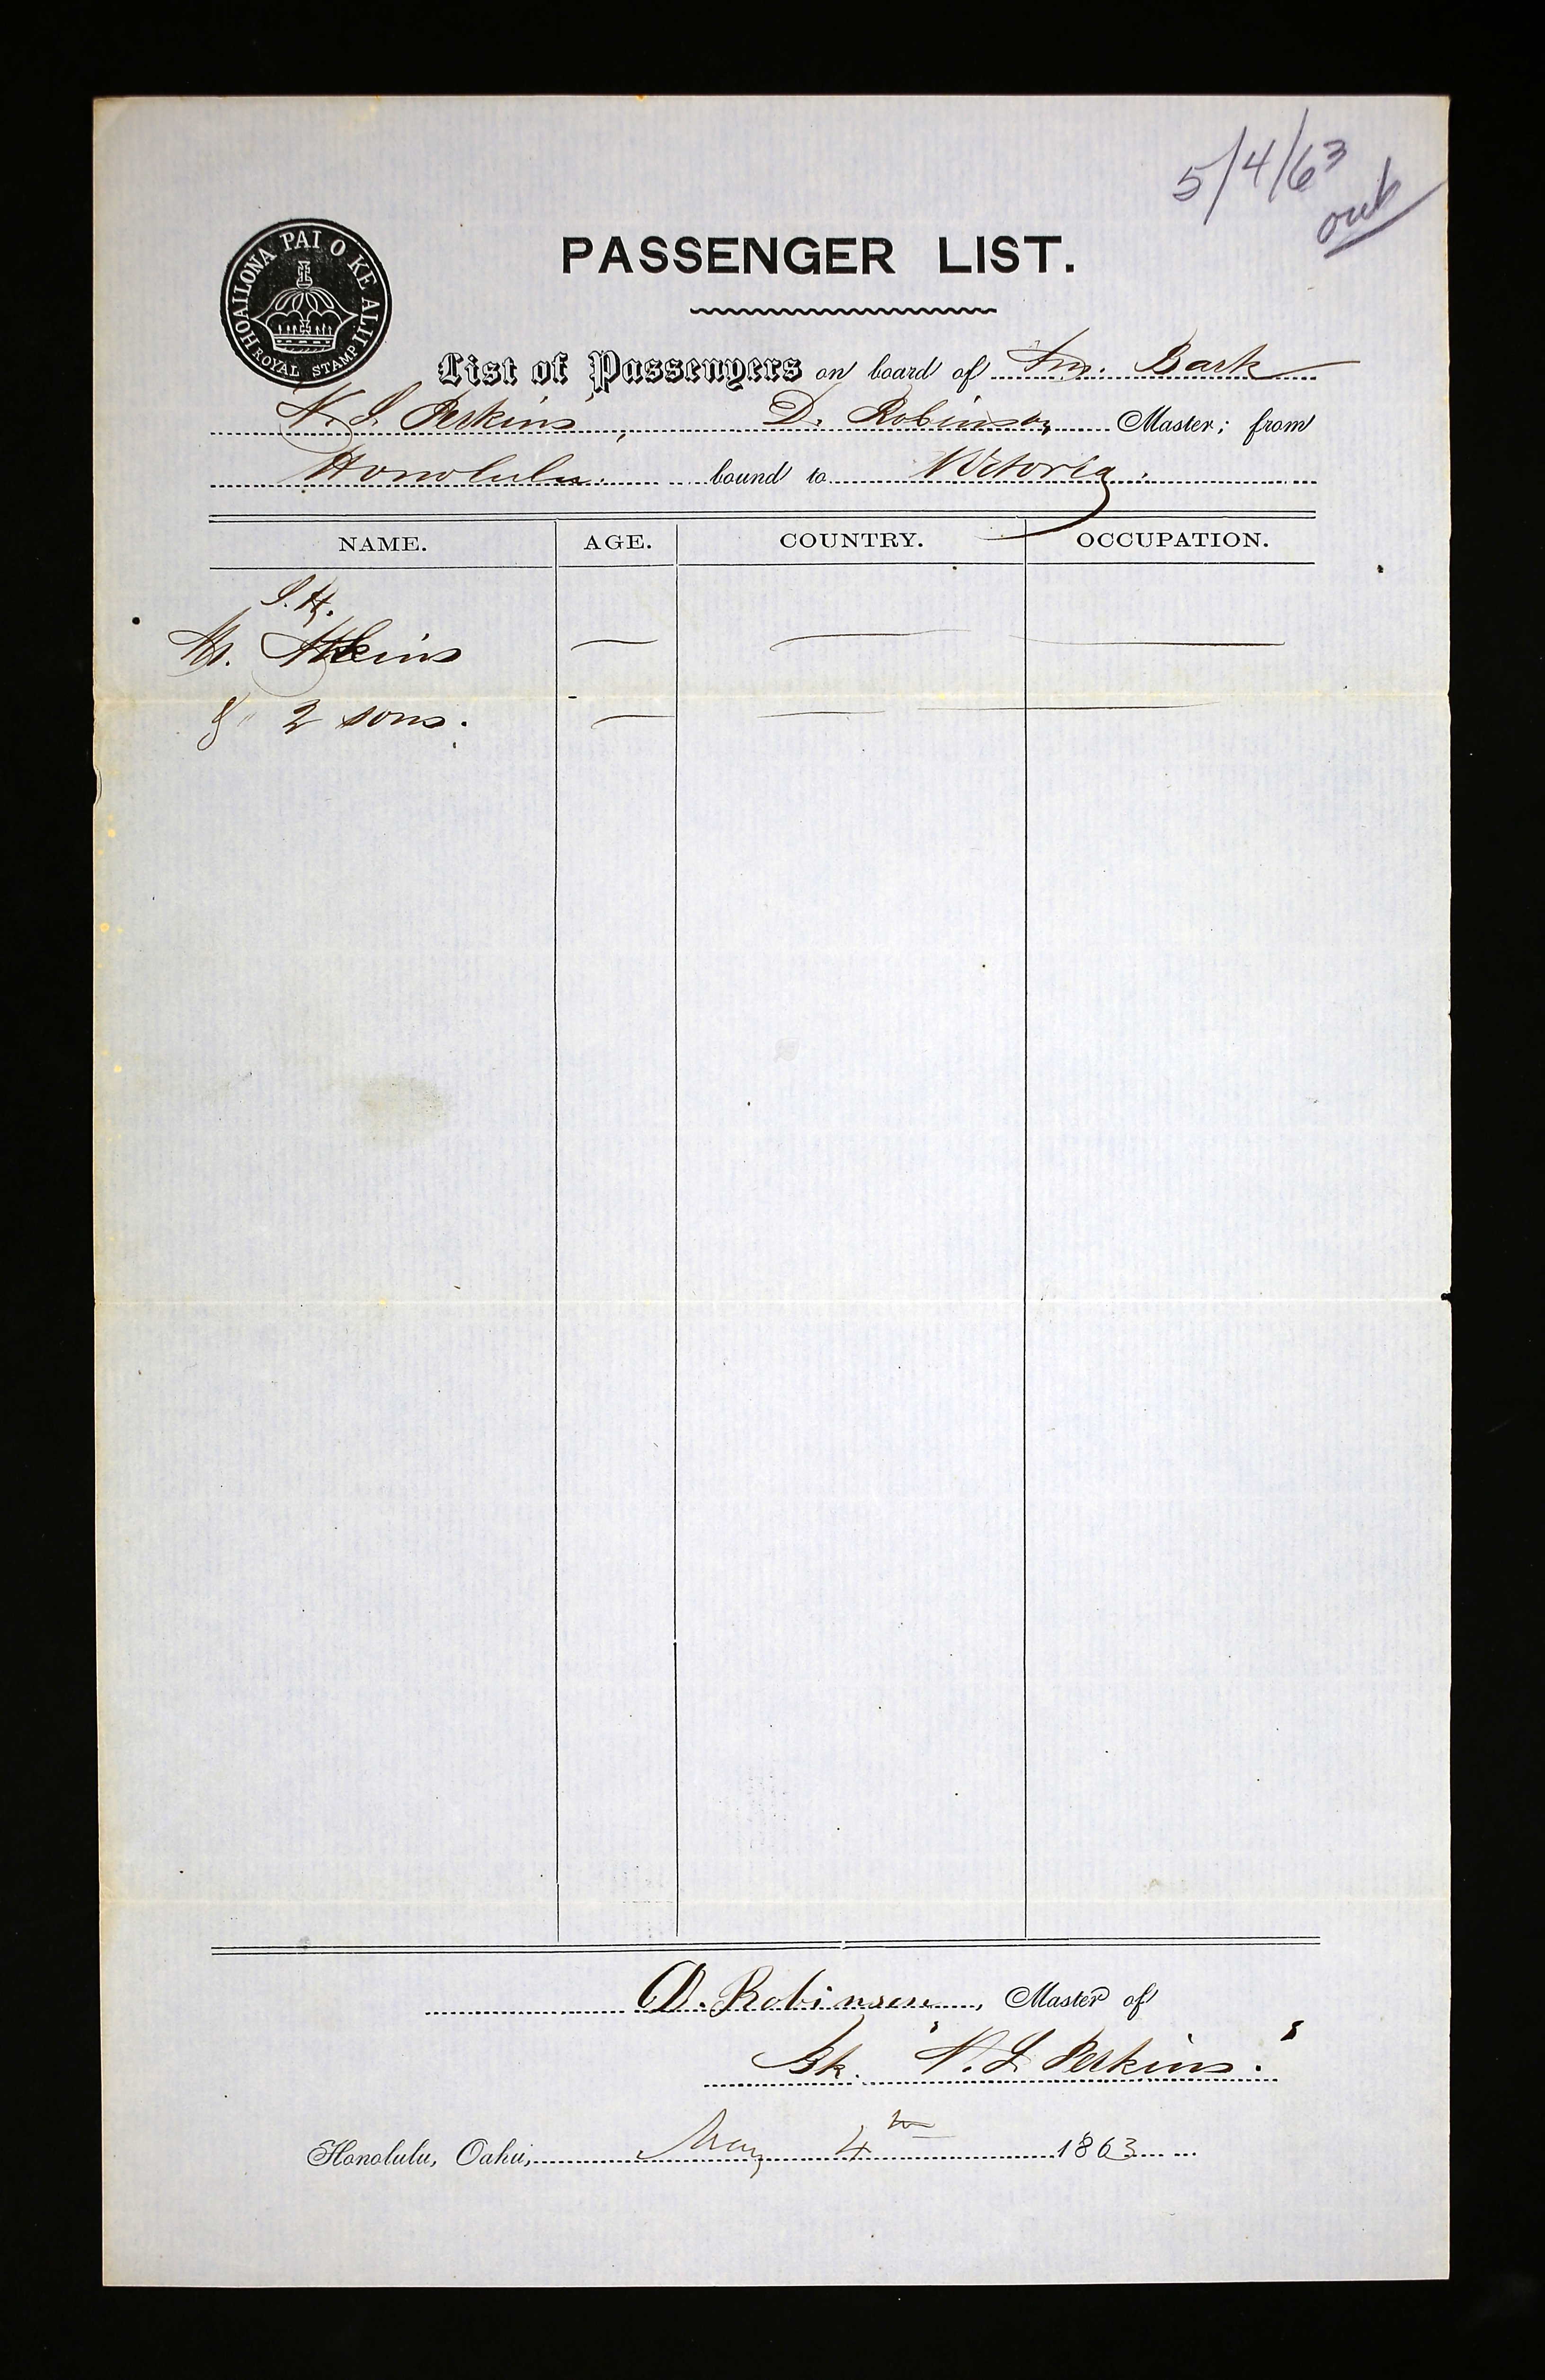 5/4/63
out
HOAILONA PAI O KE ALII
ROYAL STAMP
PASSENGER LIST.
List of Passengers on board of Am. Bark
N. S. Perkins, D. Robinson Master; from
Honolulu. bound to Victoria.
NAME. AGE. COUNTRY. OCCUPATION.
S. H.
Mr. Atkins
& 2 sons.
D. Robinson, Master of
Bk. "N. S. Perkins."
Honolulu, Oahu, May 4th 1863